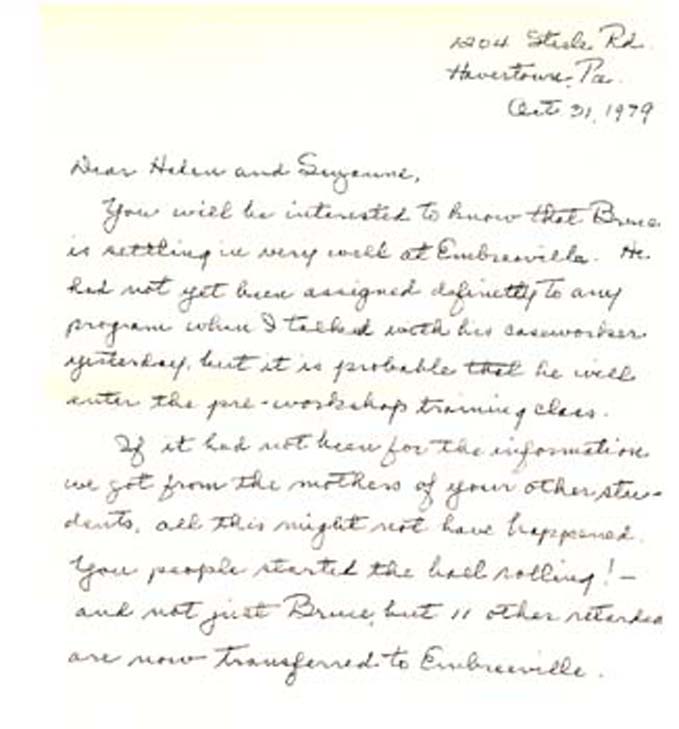 1204 Steele Rd.
Havertown, Pa.
Oct. 31, 1979
Dear Helen and Suzanne,
You will be interested to know that Bruce
is settling in very well at Embreeville. He
had not yet been assigned definetly to any
program when I talked with his caseworker
yesterday, but it is probable that he will
enter the pre-workshop training class.
If it had not been for the information
we got from the mothers of your other stu-
dents, all this might not have happened.
You people started the ball rolling! –
and not just Bruce, but 11 other retarded
are now transferred to Embreeville.